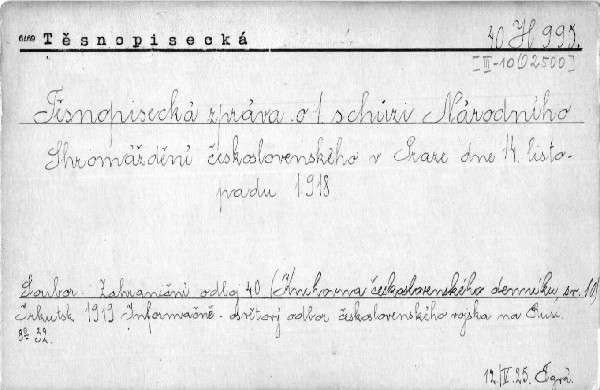 Těsnopisecká
40 H 995.
[II-10()2500]
Těsnopisecká zpráva o 1 schůzi Národního
Shromáždění československého v Praze dne 14. listo-
padu 1918
Soubor: Zahraniční odboj 40 (Knihovna československého denníku, sv. 10)
Irkutsk 1919 Informačně-osvětový odbor československého vojska na Rusi.
8° 29
12/V.25.